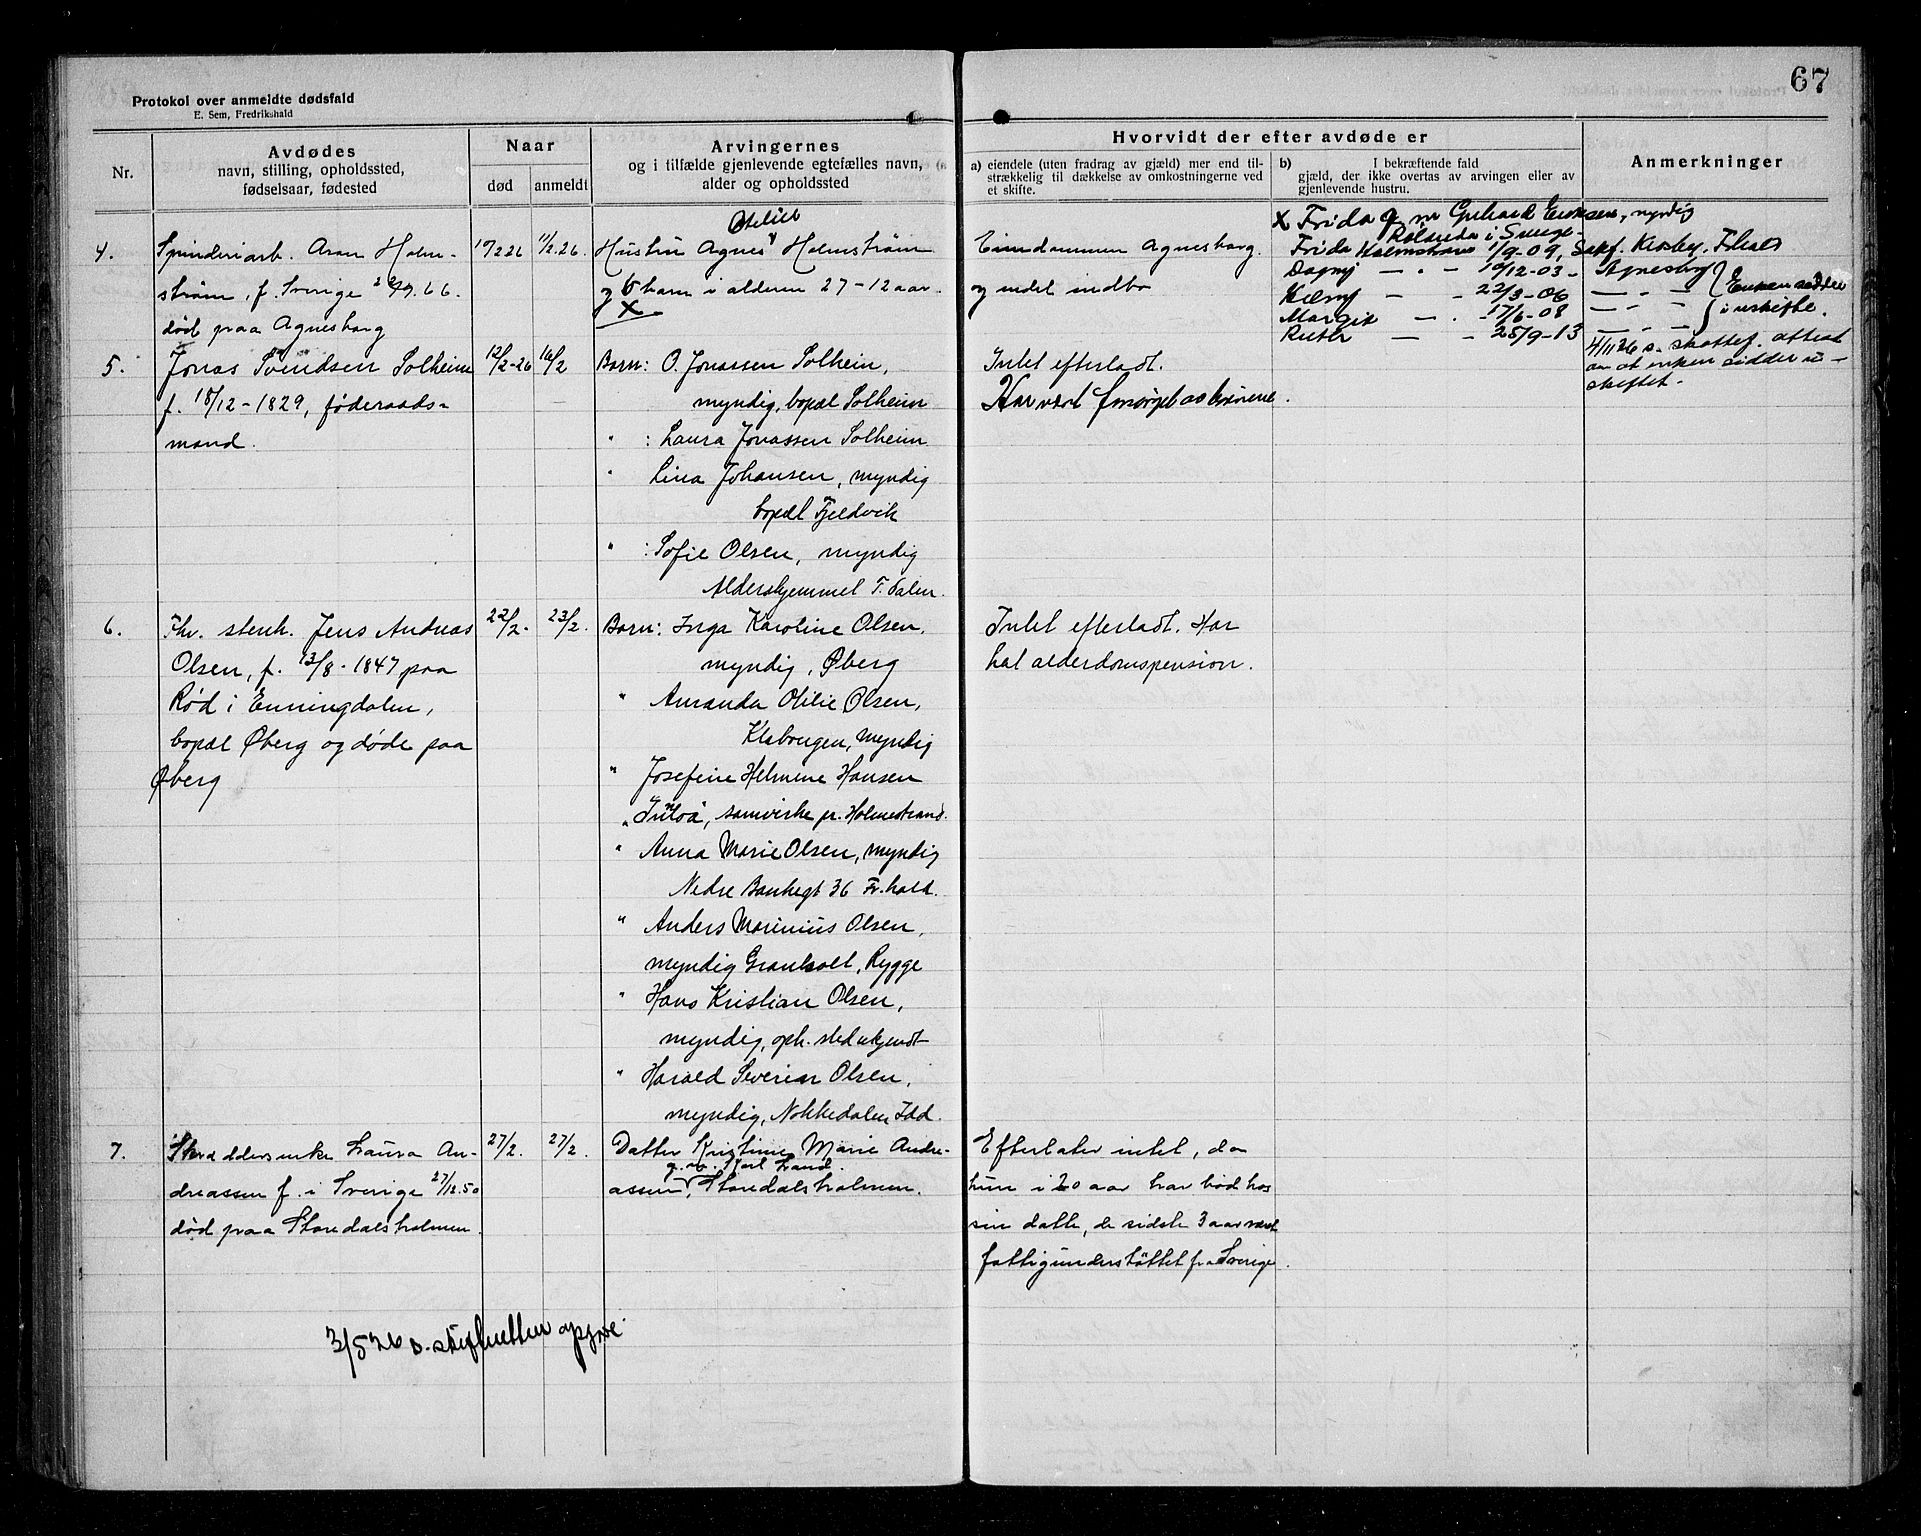 67
Protokol over anmeldte dødsfald
E. Sem, Fredrikshald
Nr.
Avdødes
navn, stilling, opholdssted,
fødselsaar, fødested
Naar
død
anmeldt
Arvingernes
og i tilfælde gjenlevende egtefælles navn,
alder og opholdssted
Hvorvidt der efter avdøde er
a) eiendele (uten fradrag av gjæld) mer end til-
strækkelig til dækkelse av omkostningerne ved
et skifte.
b) I bekræftende fald
gjæld, der ikke overtas av arvingen eller av
gjenlevende hustru.
Anmerkninger
4.
Spinderiarb. Aron Holm-
strøm, f. Sverige
død paa Agnesborg
11/2.26.
Otilie
Hustru Agnes Holmstrøm
og 6 barn i alderen 27-12 aar.
X
Eiendommen Agnesborg
og endel indbo
X Frida g. m. Gerhard Eriksen, myndig
i Sverige
Frida Holmstrøm 1/9-09,
Dagny — " — 10/12-03 -
— - 22/3-06
Margit — . 17/6-08
Ruth — - 25/9-13
Agnesborg
Enken sidder
i uskifte.
4/11 26 s. skattef. attest
om at enken sidder u-
skiftet.
5.
Jonas Svendsen Solheim
f. 18/12-1829, føderaads-
mand.
12/2-26
16/2
Barn: O. Jonassen Solheim,
myndig, bopæl Solheim
" : Laura Jonassen Solheim
" Lina Johansen, myndig
bopæl Fjeldvik
" : Sofie Olsen, myndig
Aldershjemmet T.dalen.
Intet efterladt.
Har vært forsørget av børnene.
6.
Fhv. stenh. Jens Andreas
Olsen, f. 13/8-1847 paa
Rød i Enningdalen,
bopæl Øberg og døde paa
Øberg
22/2.
23/2.
Barn: Inga Karoline Olsen,
myndig, Øberg
" Amanda Otilie Olsen,
Klebougen, myndig
" Josefine Helmine Hansen
samvirke pr. Holmestrand.
" Anna Marie Olsen, myndig
Nedre Bankegt 36 Fr.hald.
" Anders Marinius Olsen,
myndig Granholt, Rygge
" Hans Kristian Olsen,
myndig, oph. sted ukjendt
" Harald Severin Olsen,
myndig, Nokkedalen Idd.
Intet efterladt. Har
hat alderdomspension.
7.
Skreddersenke Laura An-
dreassen f. i Sverige 27/12.50
død paa Storedalsholmen.
27/2.
27/2.
Datter Kristine Marie Andre-
g. m. Karl Lund.
assen, Storedalsholmen.
Efterlater intet, da
hun i 20 aar har bød hos
sin datte, de sidste 3 aar vært
fattigunderstøttet fra Sverige.
3/5 26 s. skifteretten opgjøre